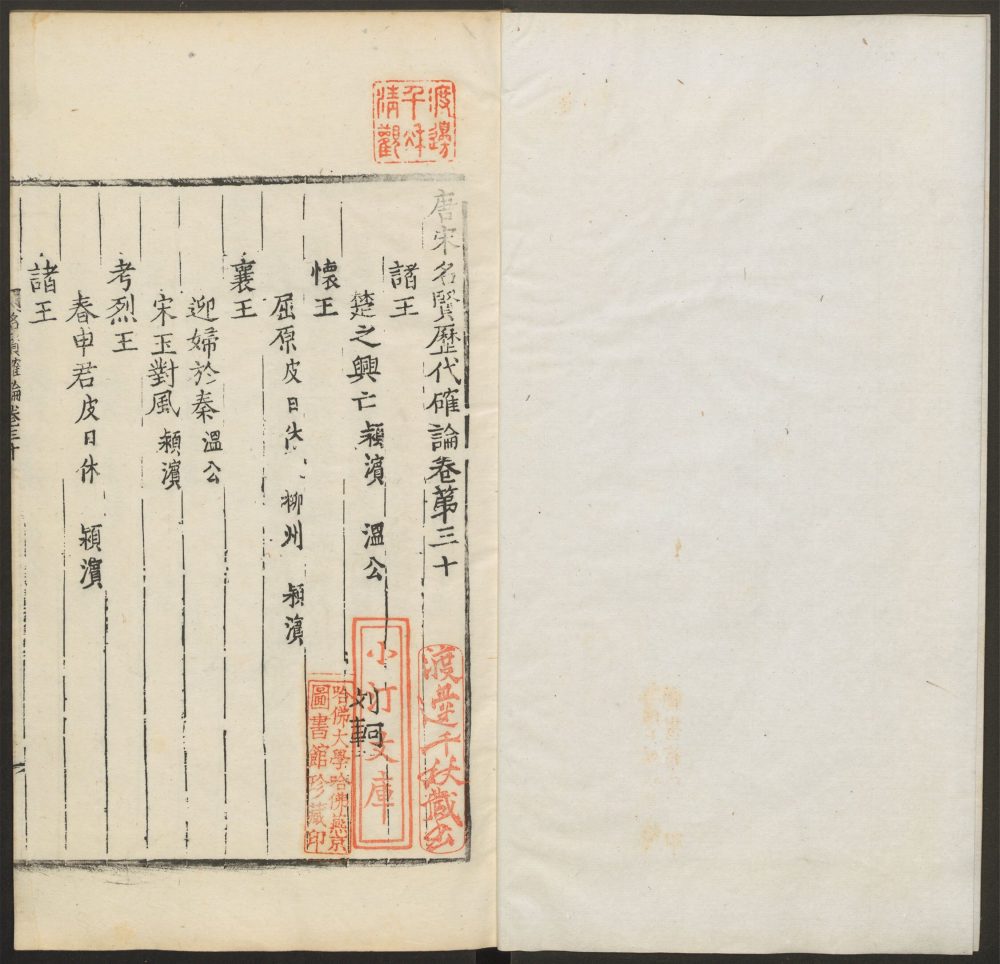 唐宋名賢歷代確論卷第三十
諸王
楚之興亡 潁濱 溫公 刘軻
懷王
屈原 皮日休 柳州 潁濱
襄王
迎婦於秦 溫公
宋玉對風 潁濱
考烈王
春申君 皮日休 潁濱
諸王
名賢確論卷三十
渡邊千秋清觀
渡邊千秋藏書
小汀文庫
哈佛大學哈佛燕京圖書館珍藏印